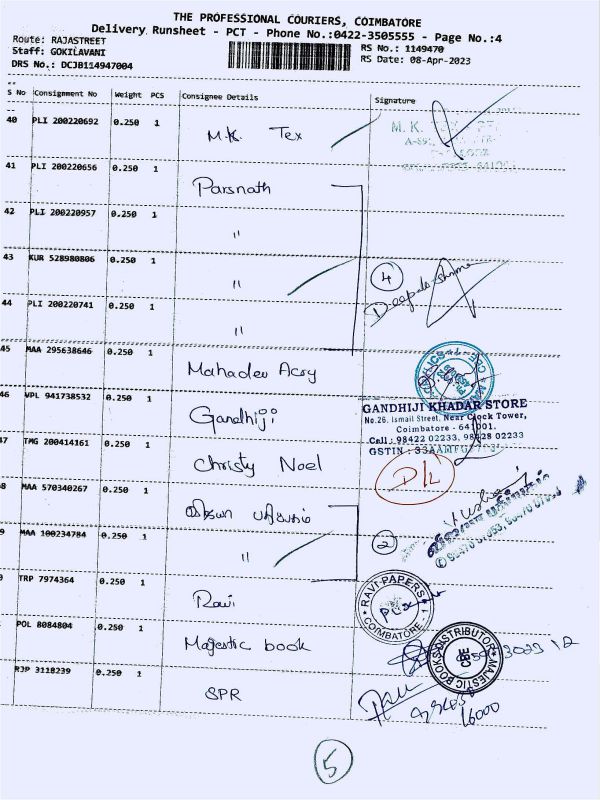 THE PROFESSIONAL COURIERS, COIMBATORE
Delivery Runsheet - PCT - Phone No.:0422-3505555 - Page No.:4
Route: RAJASTREET
Staff: GOKILAVANI
DRS No.: DCJB114947004
RS No.: 1149470
RS Date: 08-Apr-2023
S No Consignment No Weight PCS Consignee Details Signature
40 PLI 200220692 0.250 1 M.K. Tex
M. K.
41 PLI 200220656 0.250 1 Parsnath
42 PLI 200220957 0.250 1 "
43 KUR 528980806 0.250 1 "
4
44 PLI 200220741 0.250 1 "
45 MAA 295638646 0.250 1 Mahadev Acry
46 VPL 941738532 0.250 1 Gandhiji
GANDHIJI KHADAR STORE
No.26, Ismail Street, Near Clock Tower,
Coimbatore - 641001.
Cell : 98422 02233, 98428 02233
GSTIN : 33AAMFG
47 TMG 200414161 0.250 1 Christy Noel
D/L
MAA 570340267 0.250 1
MAA 100234784 0.250 1 "
2
TRP 7974364 0.250 1 Ravi
RAVI PAPERS
COIMBATORE
POL 8084804 0.250 1 Majestic book
MAJESTIC BOOKS DISTRIBUTOR
CBE
RJP 3118239 0.250 1 SPR
5